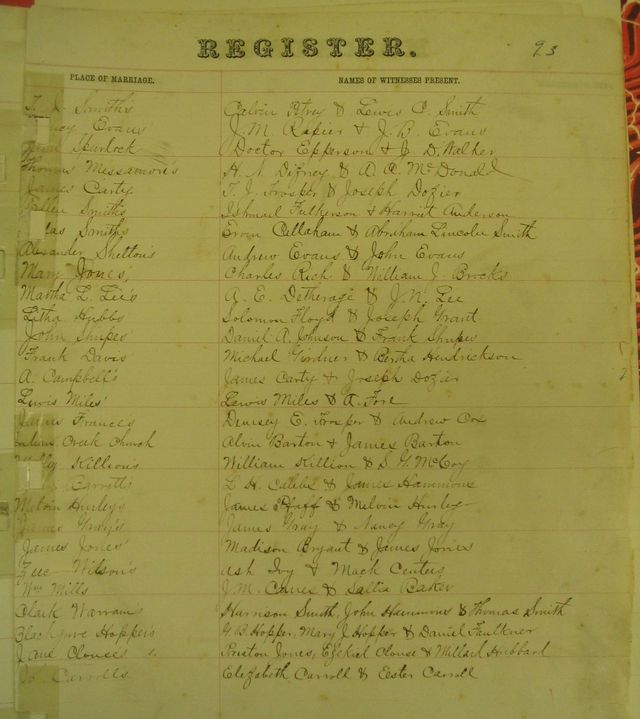 REGISTER. 93
PLACE OF MARRIAGE. NAMES OF WITNESSES PRESENT.
Smith's Calvin & Lewis C. Smith
Evans J. M. Rapier & J. B. Evans
Spurlock Doctor Epperson & J. D. Walker
Thomas Messamon's H. N. Dizney & A. A. McDonald
James Carty T. J. Prosper & Joseph Dozier
Ellen Smiths Ishmail Fulkerson & Harriet Anderson
Smiths Ervin Callaham & Abraham Lincoln Smith
Alexander Shelton's Andrew Evans & John Evans
Mary Jones' Charles Rich & William J. Brooks
Martha L. Lee's A. E. Detherage & J. N. Lee
Litha Hubbs Solomon Floyd & Joseph Grant
John Shupes Daniel A. Johnson & Frank Shupes
Frank Davis' Michael Girdner & Bertha Hendrickson
A. Campbell's James Carty & Joseph Dozier
Lewis Miles' Lewis Miles & A. Fore
James France's Dempsey E. Prosper & Andrew Cox
Creek Church Alvin Barton & James Barton
Killion's William Killion & S. G. McCoy
Barrett's L. H. Calebs & James Hammons
Melvin Hurley's James Pfaff & Melvin Hurley
James Gray's James Gray & Nancy Gray
James Jones' Madison Bryant & James Jones
Wilson's Ash Ivy & Mack Centers
Wm Mills J. M. & Sallie Baker
Clark Warrans Harrison Smith, John Hammons & Thomas Smith
Hopper's G B Hopper, Mary J Hopper & Daniel Faulkner
Jane Clouse s. Preston Jones, Ezekiel Clouse & Millard Hubbard
Carrolls Elizabeth Carroll & Ester Carroll